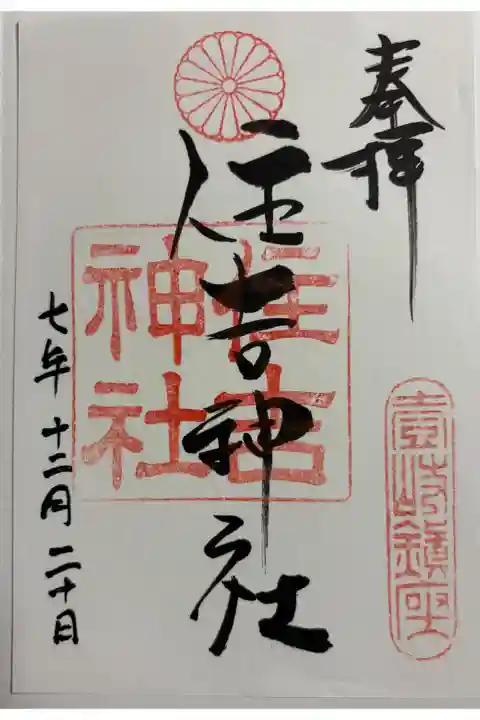 奉拝
壹岐鎮座
住吉神社
住吉
神社
七年十二月二十日